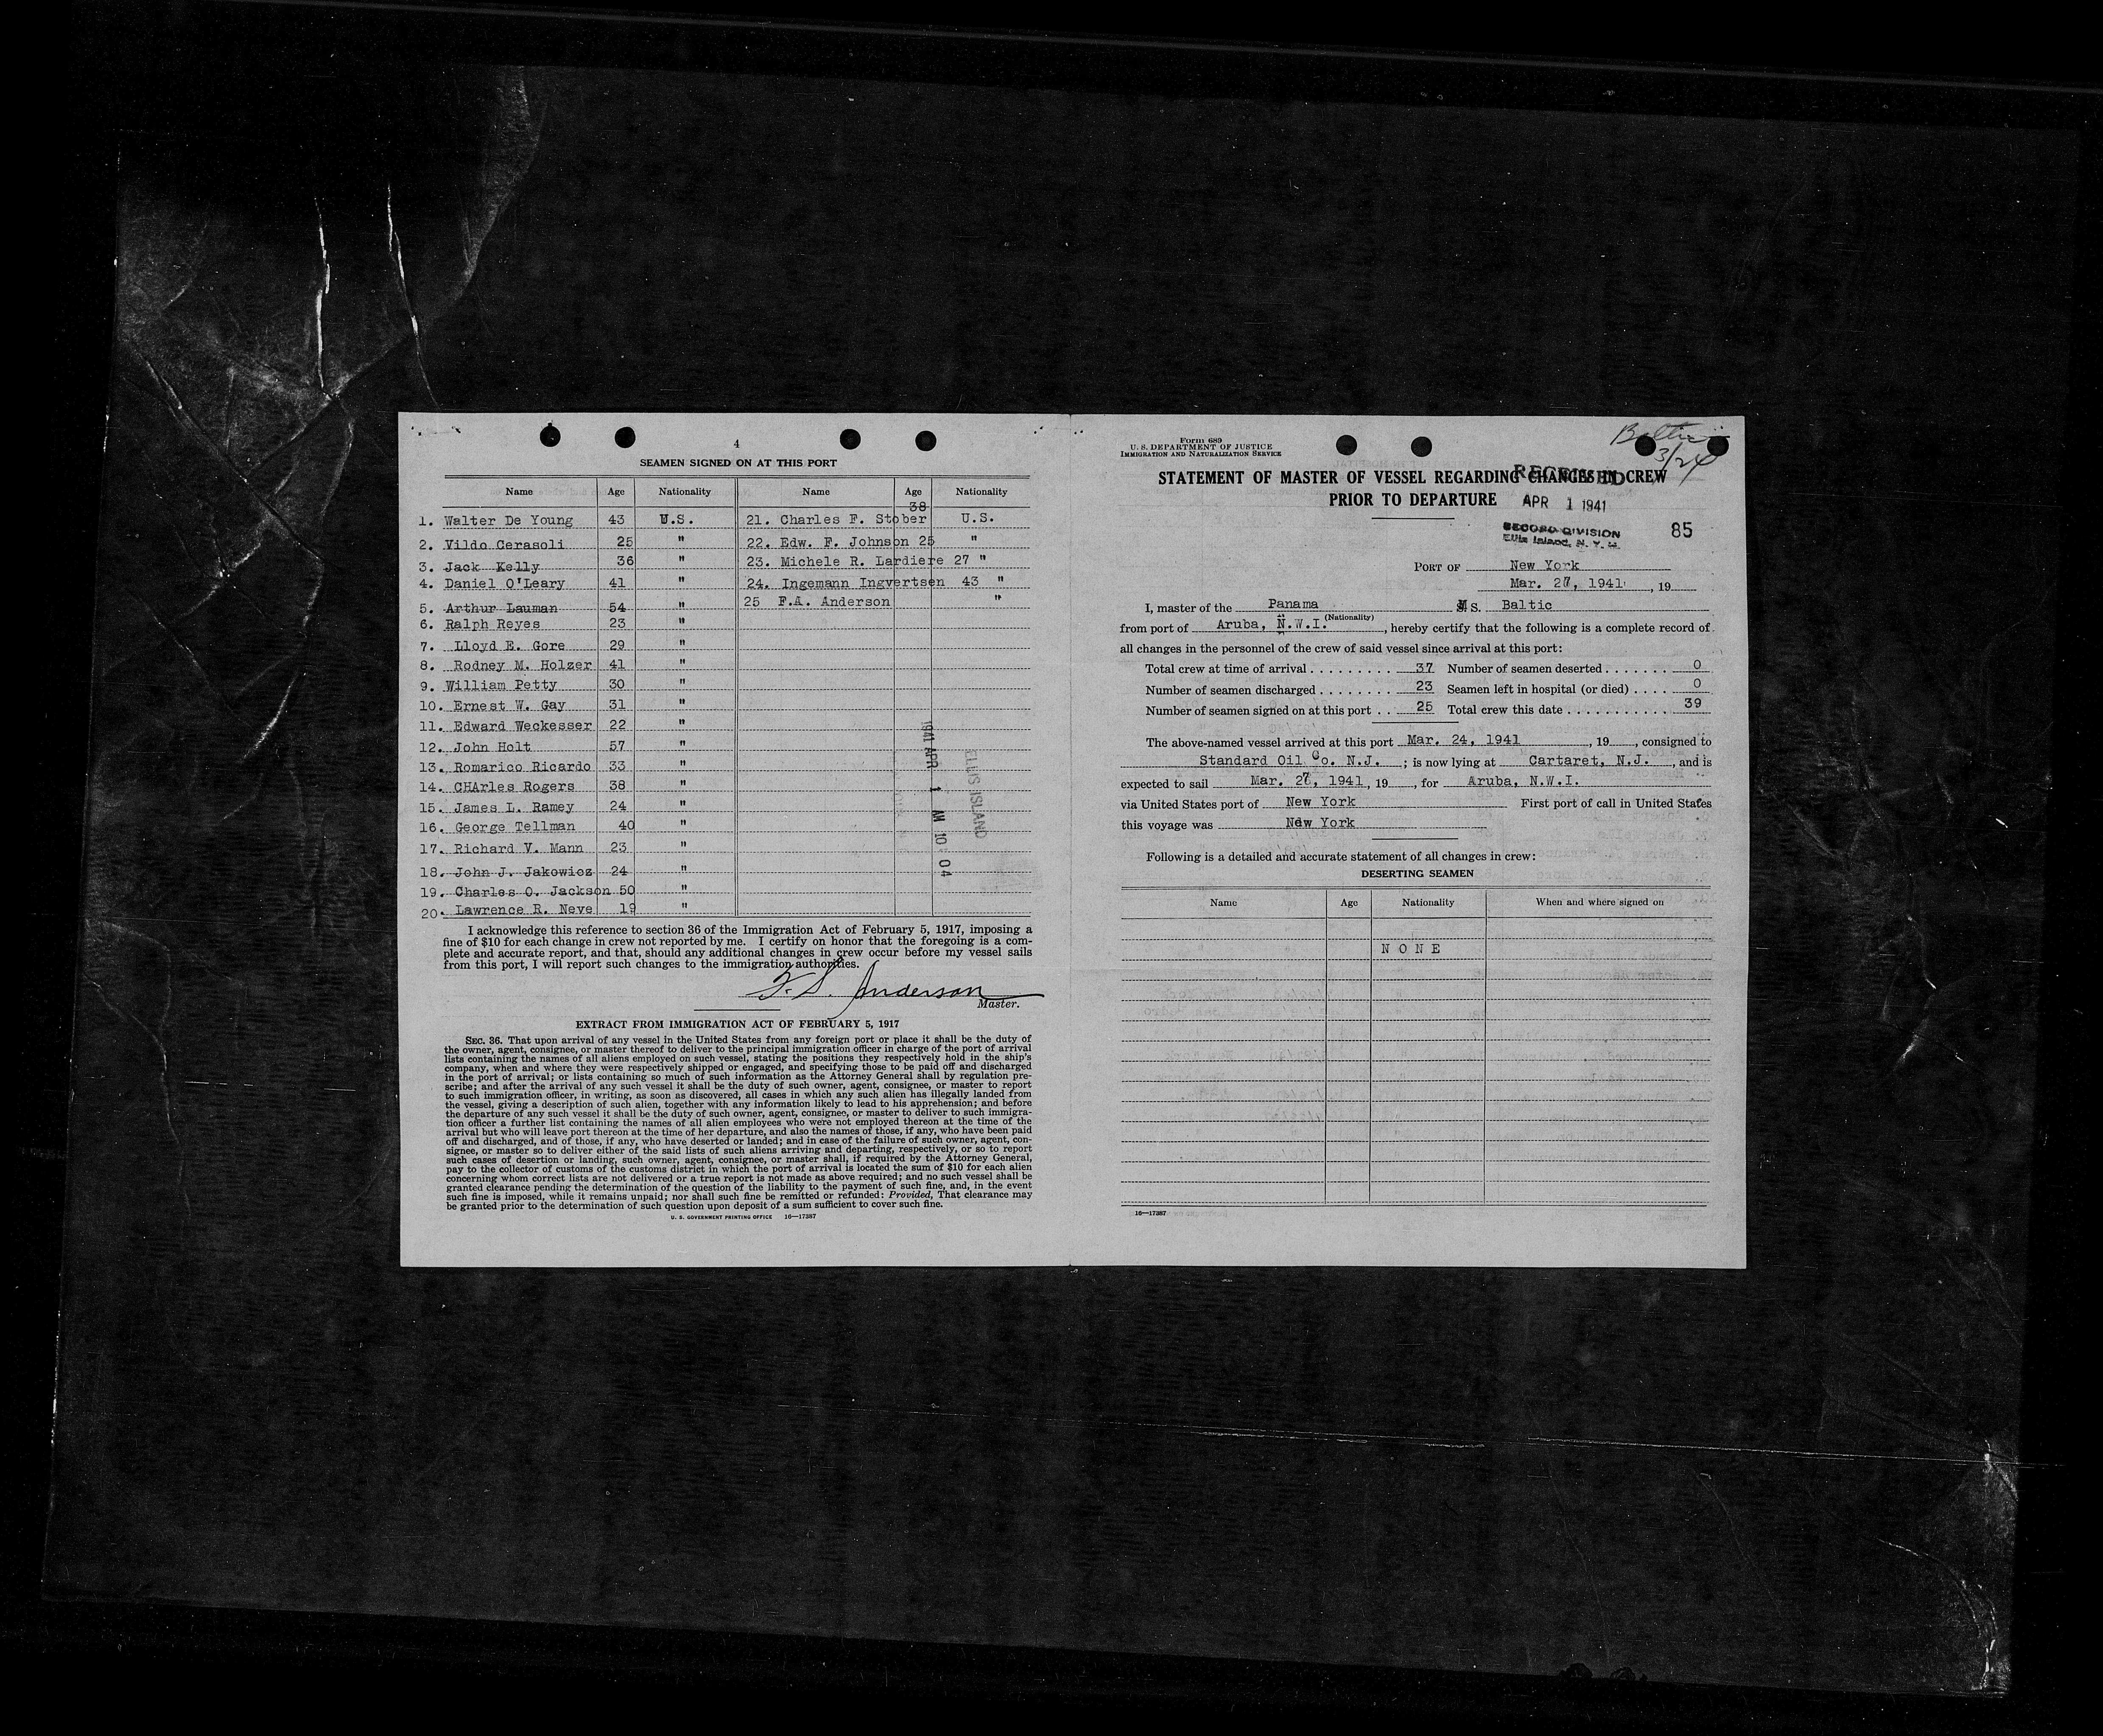 4
SEAMEN SIGNED ON AT THIS PORT
Name Age Nationality Name Age Nationality
38
1. Walter De Young 43 U.S. 21. Charles F. Stober U.S.
2. Vildo Cerasoli 25 " 22. Edw. F. Johnson 25 "
3. Jack Kelly 36 " 23. Michele R. Lardiere 27 "
4. Daniel O'Leary 41 " 24. Ingemann Ingvertsen 43 "
5. Arthur Lauman 54 " 25 F.A. Anderson "
6. Ralph Reyes 23 "
7. Lloyd E. Gore 29 "
8. Rodney M. Holzer 41 "
9. William Petty 30 "
10. Ernest W. Gay 31 "
11. Edward Weckesser 22 "
12. John Holt 57 "
13. Romarico Ricardo 33 "
14. CHArles Rogers 38 "
15. James L. Ramey 24 "
16. George Tellman 40 "
17. Richard V. Mann 23 "
18. John J. Jakowicz 24 "
19. Charles O. Jackson 50 "
20. Lawrence R. Neve 19 "
1941 APR 1 AM 10 04
ELLIS ISLAND
I acknowledge this reference to section 36 of the Immigration Act of February 5, 1917, imposing a
fine of $10 for each change in crew not reported by me. I certify on honor that the foregoing is a com-
plete and accurate report, and that, should any additional changes in crew occur before my vessel sails
from this port, I will report such changes to the immigration authorities.
F. S. Anderson
Master.
EXTRACT FROM IMMIGRATION ACT OF FEBRUARY 5, 1917
SEC. 36. That upon arrival of any vessel in the United States from any foreign port or place it shall be the duty of
the owner, agent, consignee, or master thereof to deliver to the principal immigration officer in charge of the port of arrival
lists containing the names of all aliens employed on such vessel, stating the positions they respectively hold in the ship's
company, when and where they were respectively shipped or engaged, and specifying those to be paid off and discharged
in the port of arrival; or lists containing so much of such information as the Attorney General shall by regulation pre-
scribe; and after the arrival of any such vessel it shall be the duty of such owner, agent, consignee, or master to report
to such immigration officer, in writing, as soon as discovered, all cases in which any such alien has illegally landed from
the vessel, giving a description of such alien, together with any information likely to lead to his apprehension; and before
the departure of any such vessel it shall be the duty of such owner, agent, consignee, or master to deliver to such immigra-
tion officer a further list containing the names of all alien employees who were not employed thereon at the time of the
arrival but who will leave port thereon at the time of her departure, and also the names of those, if any, who have been paid
off and discharged, and of those, if any, who have deserted or landed; and in case of the failure of such owner, agent, con-
signee, or master so to deliver either of the said lists of such aliens arriving and departing, respectively, or so to report
such cases of desertion or landing, such owner, agent, consignee, or master shall, if required by the Attorney General,
pay to the collector of customs of the customs district in which the port of arrival is located the sum of $10 for each alien
concerning whom correct lists are not delivered or a true report is not made as above required; and no such vessel shall be
granted clearance pending the determination of the question of the liability to the payment of such fine, and, in the event
such fine is imposed, while it remains unpaid; nor shall such fine be remitted or refunded: Provided, That clearance may
be granted prior to the determination of such question upon deposit of a sum sufficient to cover such fine.
U. S. GOVERNMENT PRINTING OFFICE 16—17387
Form 689
U. S. DEPARTMENT OF JUSTICE
IMMIGRATION AND NATURALIZATION SERVICE
Baltic
3/24
STATEMENT OF MASTER OF VESSEL REGARDING CHANGES IN CREW
PRIOR TO DEPARTURE
RECEIVED
APR 1 1941
RECORD DIVISION
Ellis Island, N. Y. H.
85
PORT OF New York
Mar. 27, 1941 , 19
I, master of the Panama M S. Baltic
(Nationality)
from port of Aruba, N.W.I. , hereby certify that the following is a complete record of
all changes in the personnel of the crew of said vessel since arrival at this port:
Total crew at time of arrival . . . . . . . . . 37 Number of seamen deserted . . . . . . . 0
Number of seamen discharged . . . . . . . . 23 Seamen left in hospital (or died) . . . . 0
Number of seamen signed on at this port . . 25 Total crew this date . . . . . . . . . . . 39
The above-named vessel arrived at this port Mar. 24, 1941 , 19 , consigned to
Standard Oil Co. N.J. ; is now lying at Cartaret, N.J. , and is
expected to sail Mar. 27, 1941 , 19 , for Aruba, N.W.I.
via United States port of New York First port of call in United States
this voyage was New York
Following is a detailed and accurate statement of all changes in crew:
DESERTING SEAMEN
Name Age Nationality When and where signed on
N O N E
16—17387